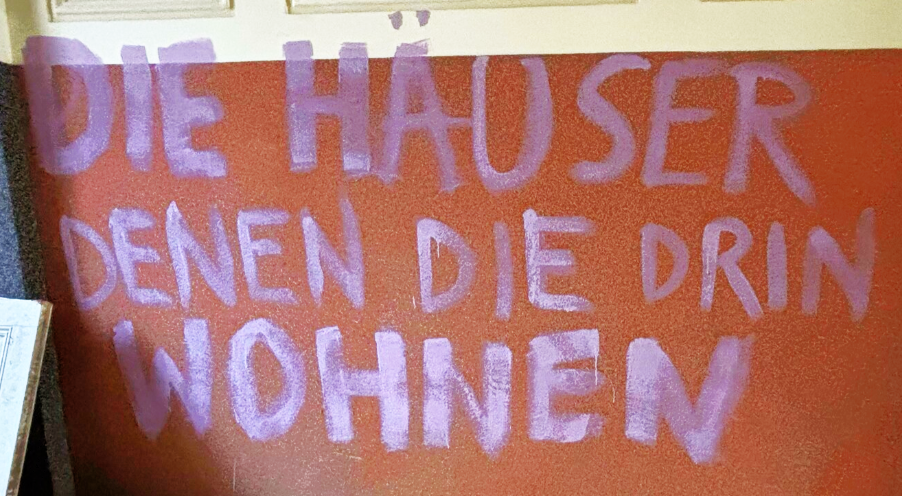 DIE HÄUSER
DENEN DIE DRIN
WOHNEN